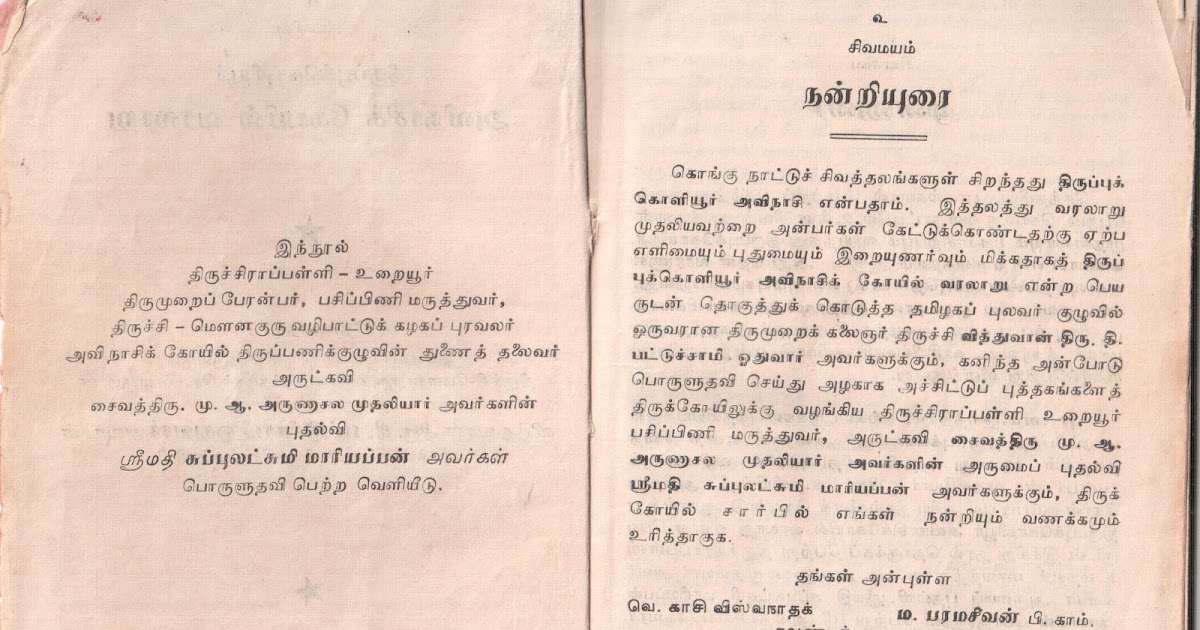 இந்நூல்
திருச்சிராப்பள்ளி – உறையூர்
திருமுறைப் பேரன்பர், பசிப்பிணி மருத்துவர்,
திருச்சி – மௌனகுரு வழிபாட்டுக் கழகப் புரவலர்
அவிநாசிக் கோயில் திருப்பணிக்குழுவின் துணைத் தலைவர்
அருட்கவி
சைவத்திரு. மு. ஆ. அருணாசல முதலியார் அவர்களின்
புதல்வி
ஸ்ரீமதி சுப்புலட்சுமி மாரியப்பன் அவர்கள்
பொருளுதவி பெற்ற வெளியீடு.
௨
சிவமயம்
நன்றியுரை
கொங்கு நாட்டுச் சிவத்தலங்களுள் சிறந்தது திருப்புக்
கொளியூர் அவிநாசி என்பதாம். இத்தலத்து வரலாறு
முதலியவற்றை அன்பர்கள் கேட்டுக்கொண்டதற்கு ஏற்ப
எளிமையும் புதுமையும் இறையுணர்வும் மிக்கதாகத் திருப்
புக்கொளியூர் அவிநாசிக் கோயில் வரலாறு என்ற பெய
ருடன் தொகுத்துக் கொடுத்த தமிழகப் புலவர் குழுவில்
ஒருவரான திருமுறைக் கலைஞர் திருச்சி வித்துவான் திரு. தி.
பட்டுச்சாமி ஓதுவார் அவர்களுக்கும், கனிந்த அன்போடு
பொருளுதவி செய்து அழகாக அச்சிட்டுப் புத்தகங்களைத்
திருக்கோயிலுக்கு வழங்கிய திருச்சிராப்பள்ளி உறையூர்
பசிப்பிணி மருத்துவர், அருட்கவி சைவத்திரு மு. ஆ.
அருணாசல முதலியார் அவர்களின் அருமைப் புதல்வி
ஸ்ரீமதி சுப்புலட்சுமி மாரியப்பன் அவர்களுக்கும், திருக்
கோயில் சார்பில் எங்கள் நன்றியும் வணக்கமும்
உரித்தாகுக.
தங்கள் அன்புள்ள
வெ. காசி விஸ்வநாதக் ம. பரமசிவன் பி. காம்.